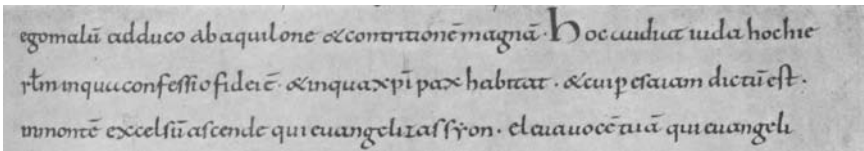 egomalū adduco abaquilone &contritionēmagnā· Hocaudiat iuda hochie
rłm inquaconfessiofideiē· &inquaxp̄i pax habitat· &cuip̲esaiam dictūest·
inmontē excelsūascende quieuangelizassyon· eleuauocētuā quieuangeli